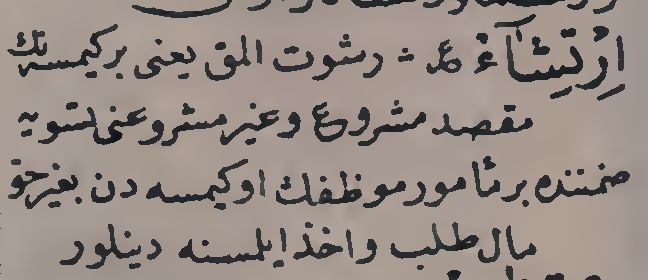 اِرْتِشَآءْ ع ـ رشوت المق يعنى بر كيمسه نك
مقصد مشروع و غير مشروعنى تسويه
ضمننده بر مأمور موظفك او كيمسه دن بغير حق
مال طلب و اخذ ايلمسنه دينلور